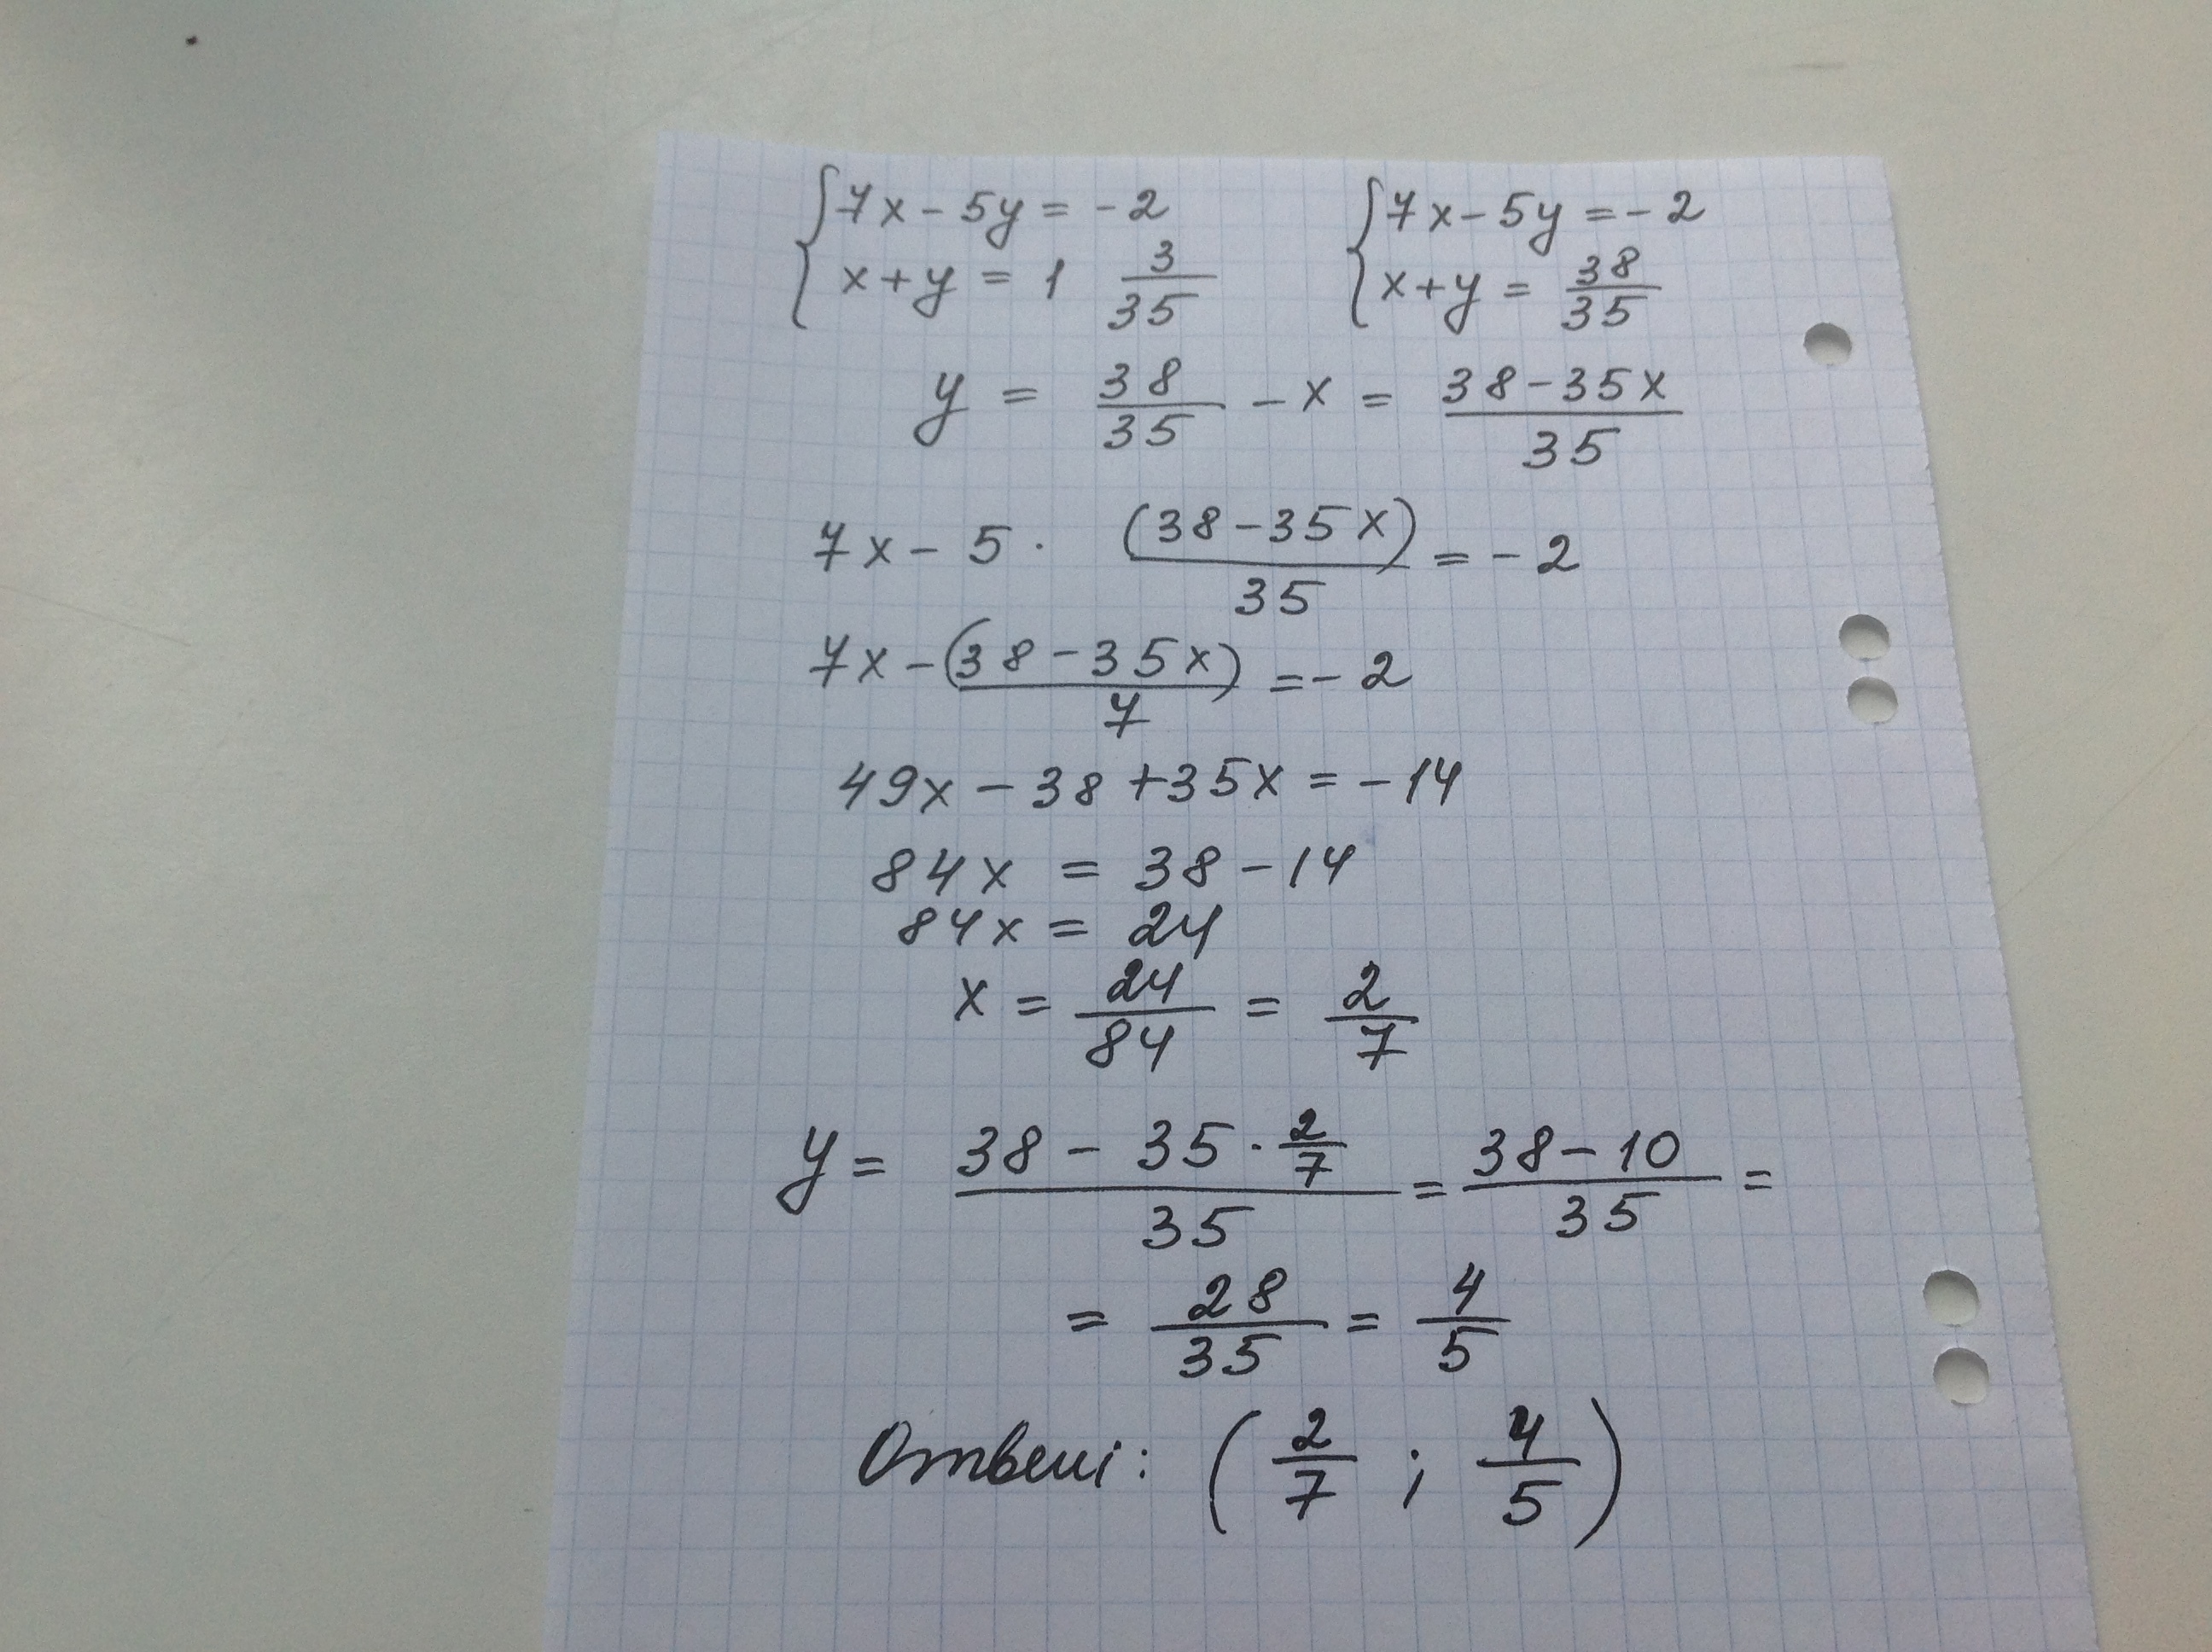 {7x - 5y = -2   {7x - 5y = -2
{x + y = 1 3/35   {x + y = 38/35
y = 38/35 - x = (38 - 35x)/35
7x - 5 · (38 - 35x)/35 = -2
7x - (38 - 35x)/7 = -2
49x - 38 + 35x = -14
84x = 38 - 14
84x = 24
x = 24/84 = 2/7
y = (38 - 35 · 2/7)/35 = (38 - 10)/35 =
= 28/35 = 4/5
Ответ: (2/7 ; 4/5)